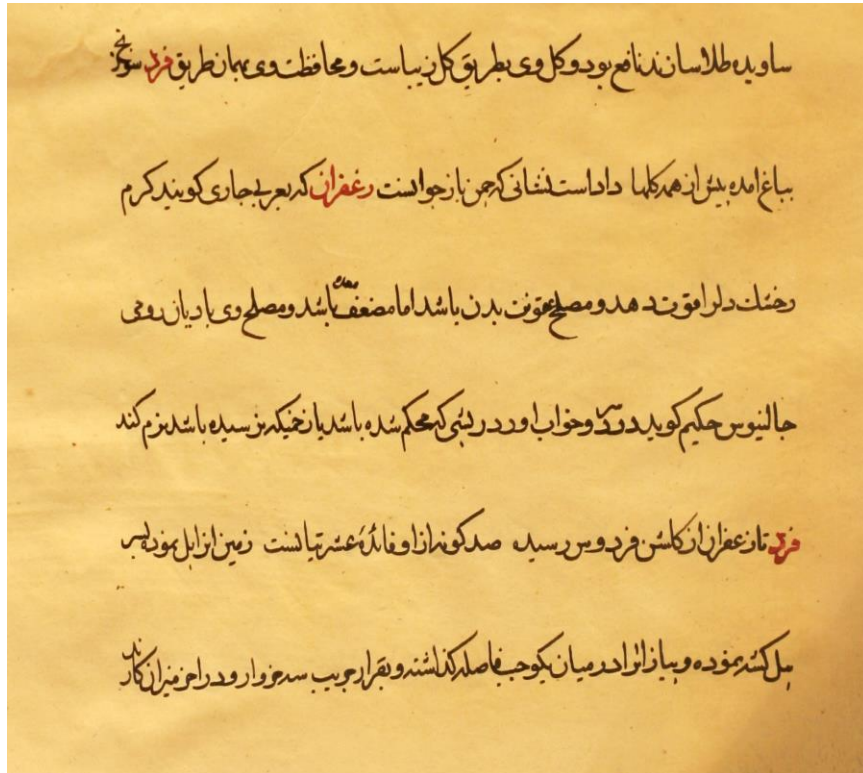 ساویده طلا سازند نافع بود و کل وی بطریق کل زیباست و محافظت وی بهمان طریق فرد
بباغ امده پیش از همه کلها داداست نشانی که چمن باز جوانست زعفران که بعربی جاری کویند کرم
خشك دلرا قوت دهد و مصلح عفونت بدن باشد اما مضعف معده باشد و مصلح وی بادیان رومی
جالنیوس حکیم کوید درد سر و خواب اورد ریشی که محکم شده باشد یا زخمیکه نرسیده باشد نرم کند
فرد تا زعفران از کلشن فردوس رسیده صد کونه از او فائدهٔ عشرتیانست زمین انرا بل نموده بسر
بیل کشه نموده و پیاز انرا در میان یکوجب فاصله کذاشته و بقرار جریب سه خروار و در اخر میزان کارند